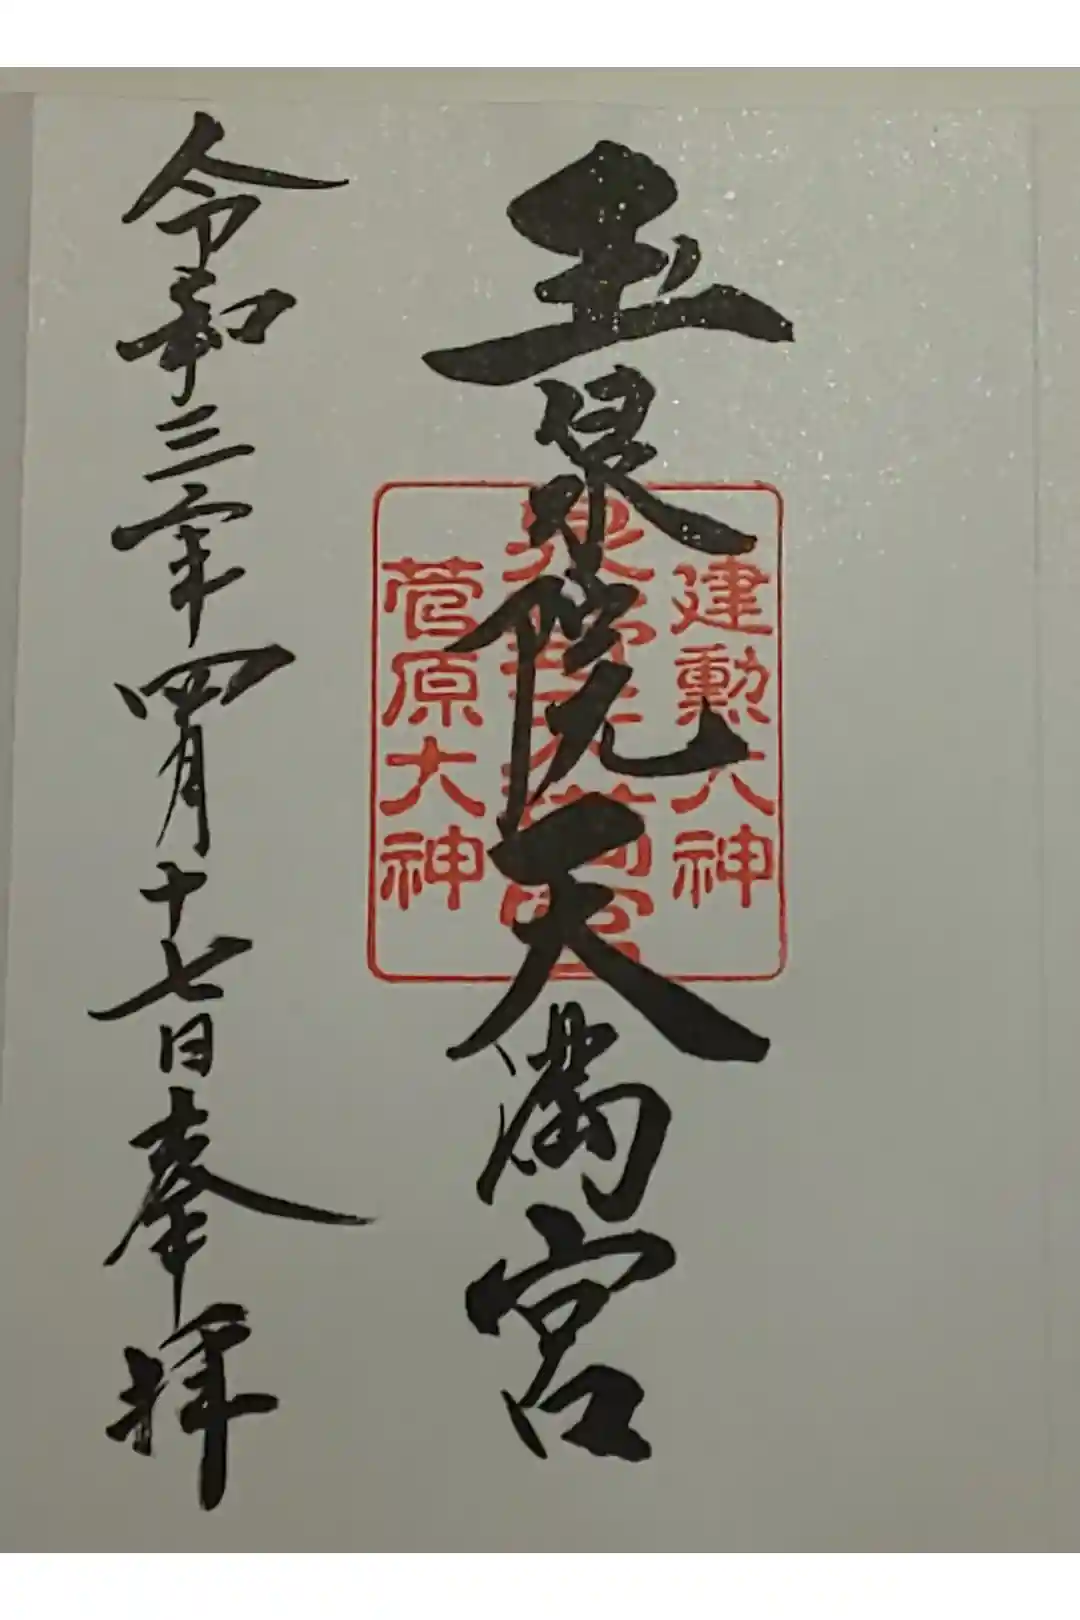 玉泉院天満宮
建勲大神
泉院天満宮
菅原大神
令和三年四月十七日奉拝